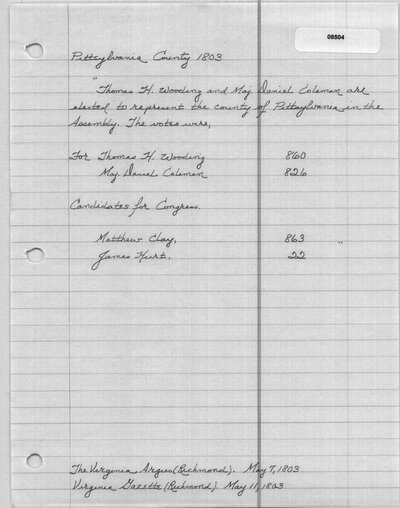 08504
Pittsylvania County 1803
"Thomas H. Wooding and Maj Daniel Coleman are
elected to represent the county of Pittsylvania in the
Assembly. The votes were,
For Thomas H. Wooding 860
Maj. Daniel Coleman 826
Candidates for Congress.
Matthew Clay, 863 "
James Hurt. 22
The Virginia Argus (Richmond). May 7, 1803
Virginia Gazette (Richmond). May 11, 1803